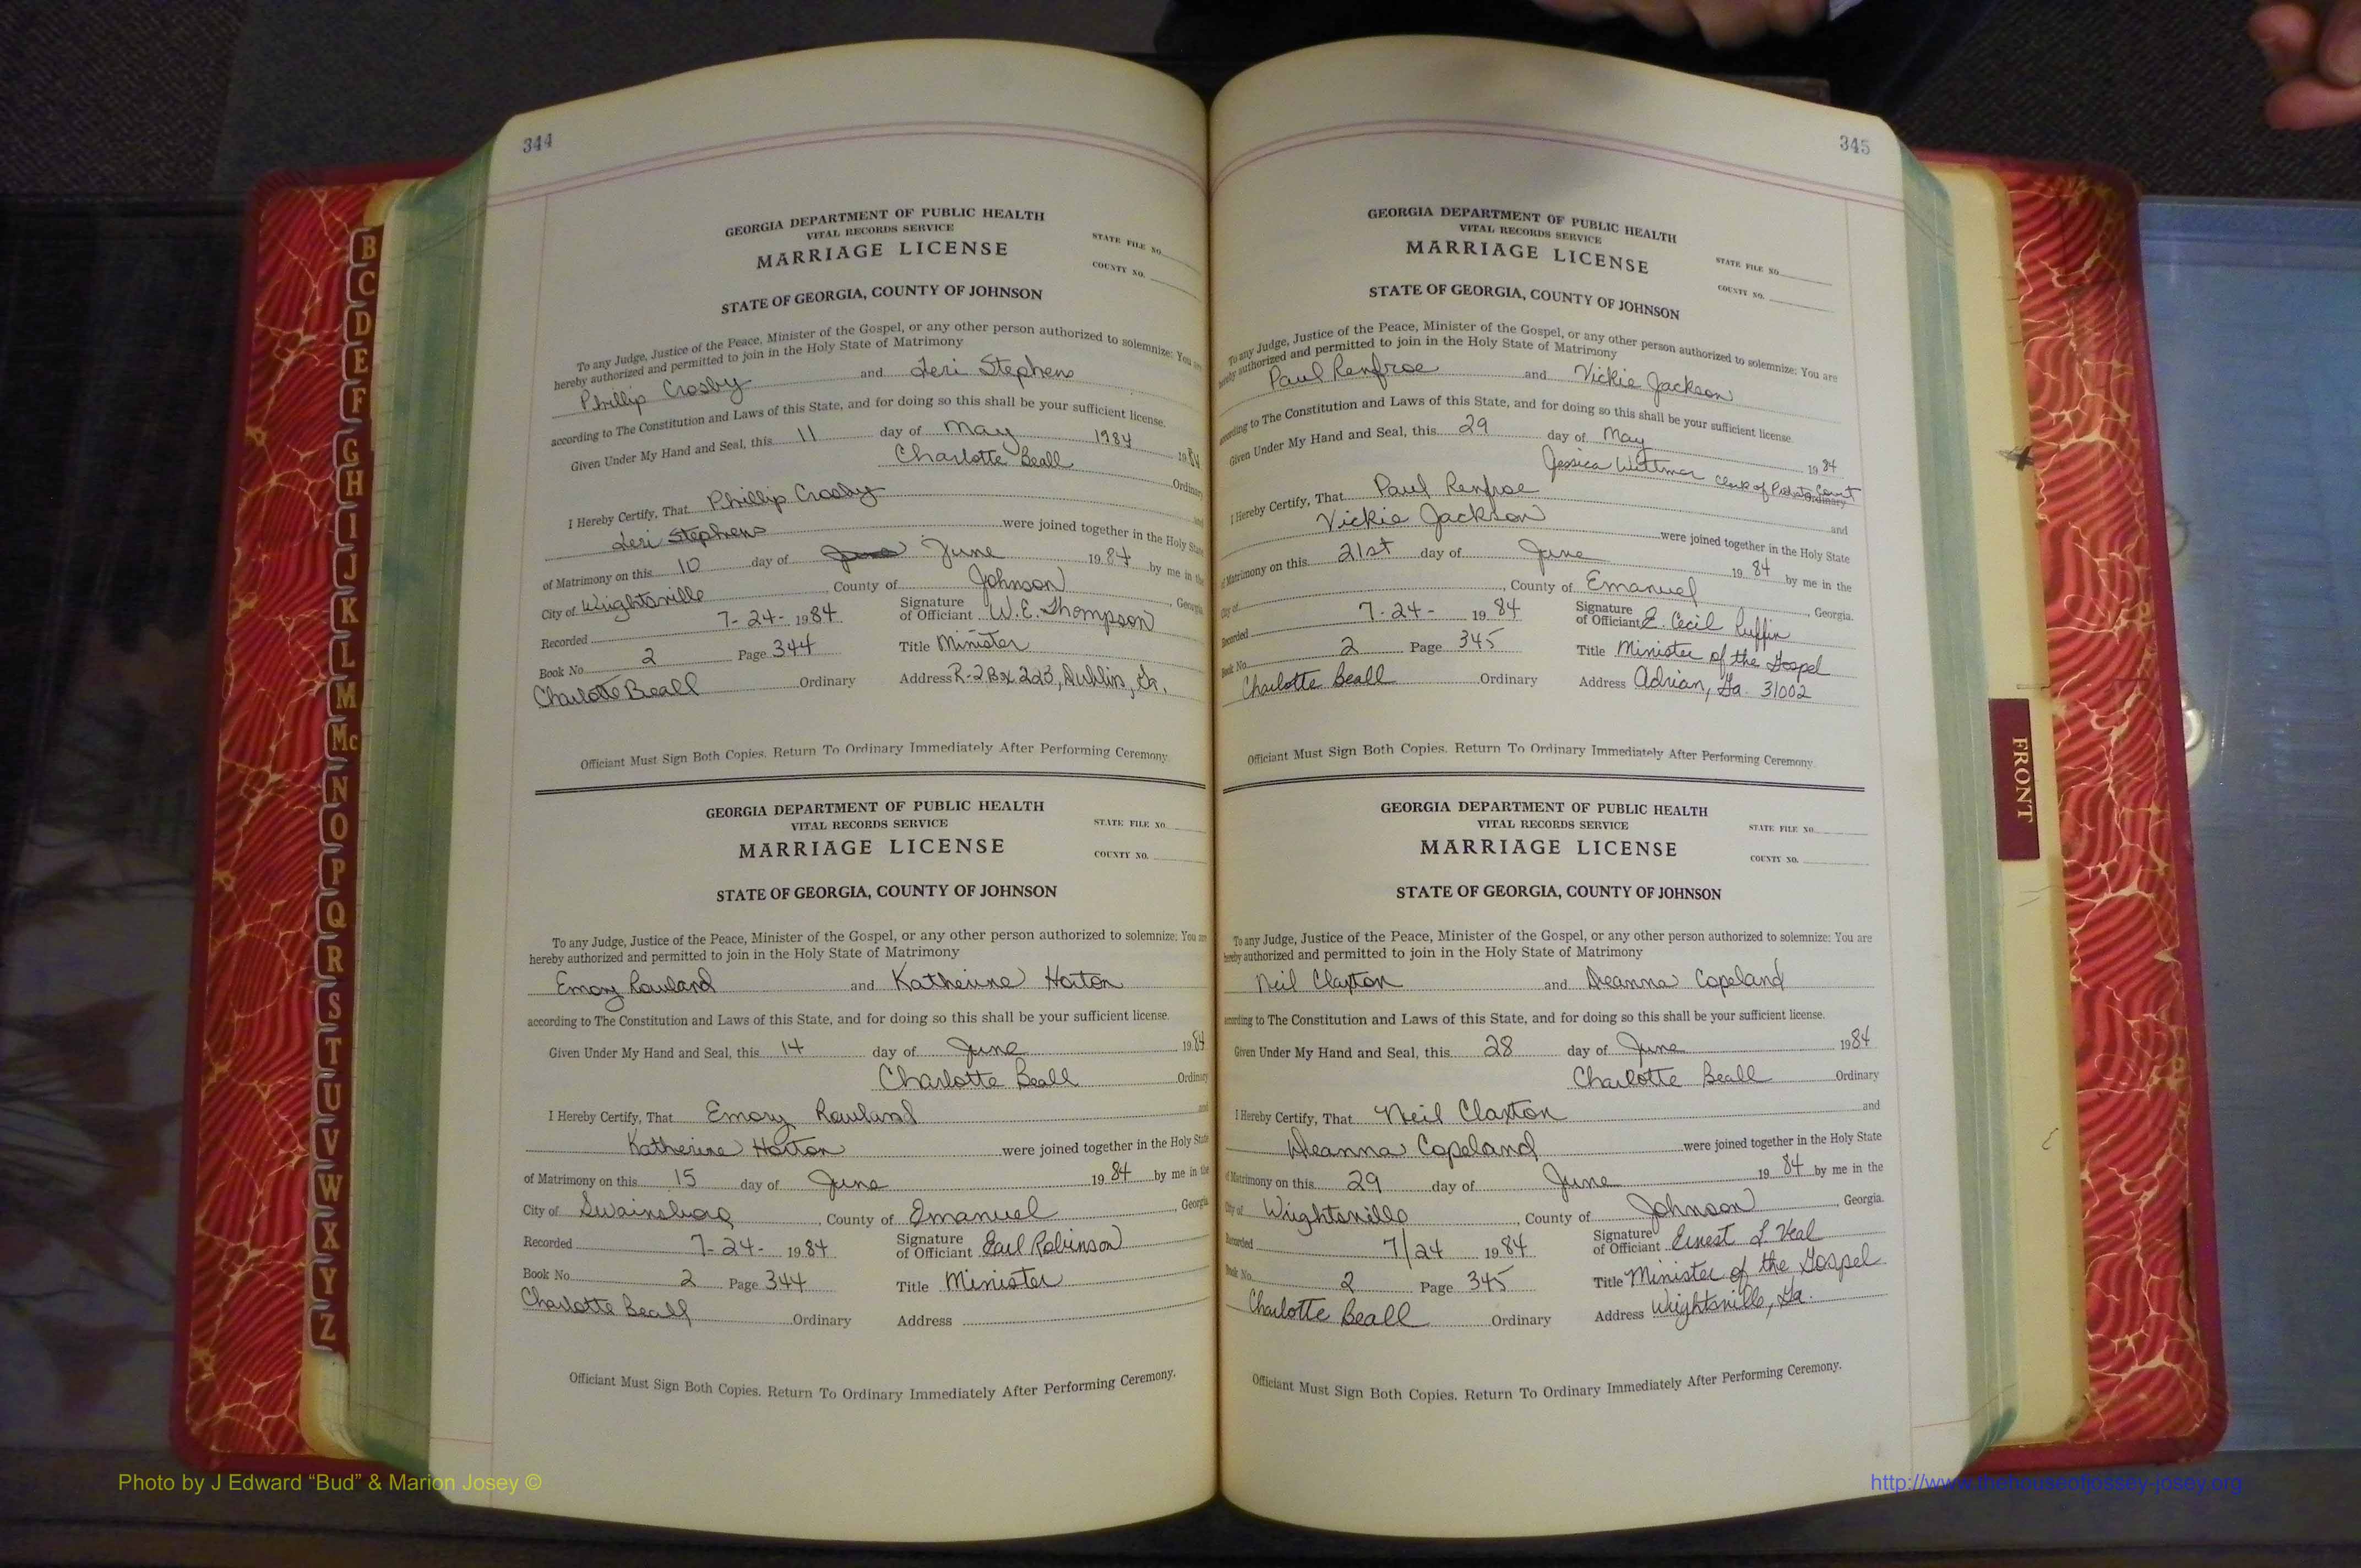 344
GEORGIA DEPARTMENT OF PUBLIC HEALTH
VITAL RECORDS SERVICE
MARRIAGE LICENSE
STATE FILE NO.
COUNTY NO.
STATE OF GEORGIA, COUNTY OF JOHNSON
To any Judge, Justice of the Peace, Minister of the Gospel, or any other person authorized to solemnize: You are
hereby authorized and permitted to join in the Holy State of Matrimony
Phillip Crosby and Teri Stephens
according to The Constitution and Laws of this State, and for doing so this shall be your sufficient license.
Given Under My Hand and Seal, this 11 day of May 1984 1984
Charlotte Beall Ordinary
I Hereby Certify, That Phillip Crosby and
Teri Stephens were joined together in the Holy State
of Matrimony on this 10 day of June 1984 by me in the
City of Wrightsville, County of Johnson, Georgia
Recorded 7-24- 1984 Signature of Officiant W.E. Thompson
Book No. 2 Page 344 Title Minister
Charlotte Beall Ordinary Address R-2 Bx 225, Dublin, Ga.
Officiant Must Sign Both Copies. Return To Ordinary Immediately After Performing Ceremony.
GEORGIA DEPARTMENT OF PUBLIC HEALTH
VITAL RECORDS SERVICE
MARRIAGE LICENSE
STATE FILE NO.
COUNTY NO.
STATE OF GEORGIA, COUNTY OF JOHNSON
To any Judge, Justice of the Peace, Minister of the Gospel, or any other person authorized to solemnize: You are
hereby authorized and permitted to join in the Holy State of Matrimony
Emory Rowland and Katherine Horton
according to The Constitution and Laws of this State, and for doing so this shall be your sufficient license.
Given Under My Hand and Seal, this 14 day of June 1984
Charlotte Beall Ordinary
I Hereby Certify, That Emory Rowland and
Katherine Horton were joined together in the Holy State
of Matrimony on this 15 day of June 1984 by me in the
City of Swainsboro, County of Emanuel, Georgia
Recorded 7-24- 1984 Signature of Officiant Earl Robinson
Book No. 2 Page 344 Title Minister
Charlotte Beall Ordinary Address
Officiant Must Sign Both Copies. Return To Ordinary Immediately After Performing Ceremony.
345
GEORGIA DEPARTMENT OF PUBLIC HEALTH
VITAL RECORDS SERVICE
MARRIAGE LICENSE
STATE FILE NO.
COUNTY NO.
STATE OF GEORGIA, COUNTY OF JOHNSON
To any Judge, Justice of the Peace, Minister of the Gospel, or any other person authorized to solemnize: You are
hereby authorized and permitted to join in the Holy State of Matrimony
Paul Renfroe and Vickie Jackson
according to The Constitution and Laws of this State, and for doing so this shall be your sufficient license.
Given Under My Hand and Seal, this 29 day of May 1984
Jessica Clerk of Probate Court Ordinary
I Hereby Certify, That Paul Renfroe and
Vickie Jackson were joined together in the Holy State
of Matrimony on this 21st day of June 1984 by me in the
City of, County of Emanuel, Georgia.
Recorded 7-24- 1984 Signature of Officiant E. Cecil Ruffin
Book No. 2 Page 345 Title Minister of the Gospel
Charlotte Beall Ordinary Address Adrian, Ga. 31002
Officiant Must Sign Both Copies. Return To Ordinary Immediately After Performing Ceremony.
GEORGIA DEPARTMENT OF PUBLIC HEALTH
VITAL RECORDS SERVICE
MARRIAGE LICENSE
STATE FILE NO.
COUNTY NO.
STATE OF GEORGIA, COUNTY OF JOHNSON
To any Judge, Justice of the Peace, Minister of the Gospel, or any other person authorized to solemnize: You are
hereby authorized and permitted to join in the Holy State of Matrimony
Neil Claxton and Deanna Copeland
according to The Constitution and Laws of this State, and for doing so this shall be your sufficient license.
Given Under My Hand and Seal, this 28 day of June 1984
Charlotte Beall Ordinary
I Hereby Certify, That Neil Claxton and
Deanna Copeland were joined together in the Holy State
of Matrimony on this 29 day of June 1984 by me in the
City of Wrightsville, County of Johnson, Georgia.
Recorded 7/24 1984 Signature of Officiant Ernest L. Veal
Book No. 2 Page 345 Title Minister of the Gospel
Charlotte Beall Ordinary Address Wrightsville, Ga.
Officiant Must Sign Both Copies. Return To Ordinary Immediately After Performing Ceremony.
B
C
D
E
F
G
H
I
J
K
L
M
Mc
N
O
P
Q
R
S
T
U
V
W
X
Y
Z
FRONT
Photo by J Edward “Bud” & Marion Josey ©
http://www.thehouseofjossey-josey.org